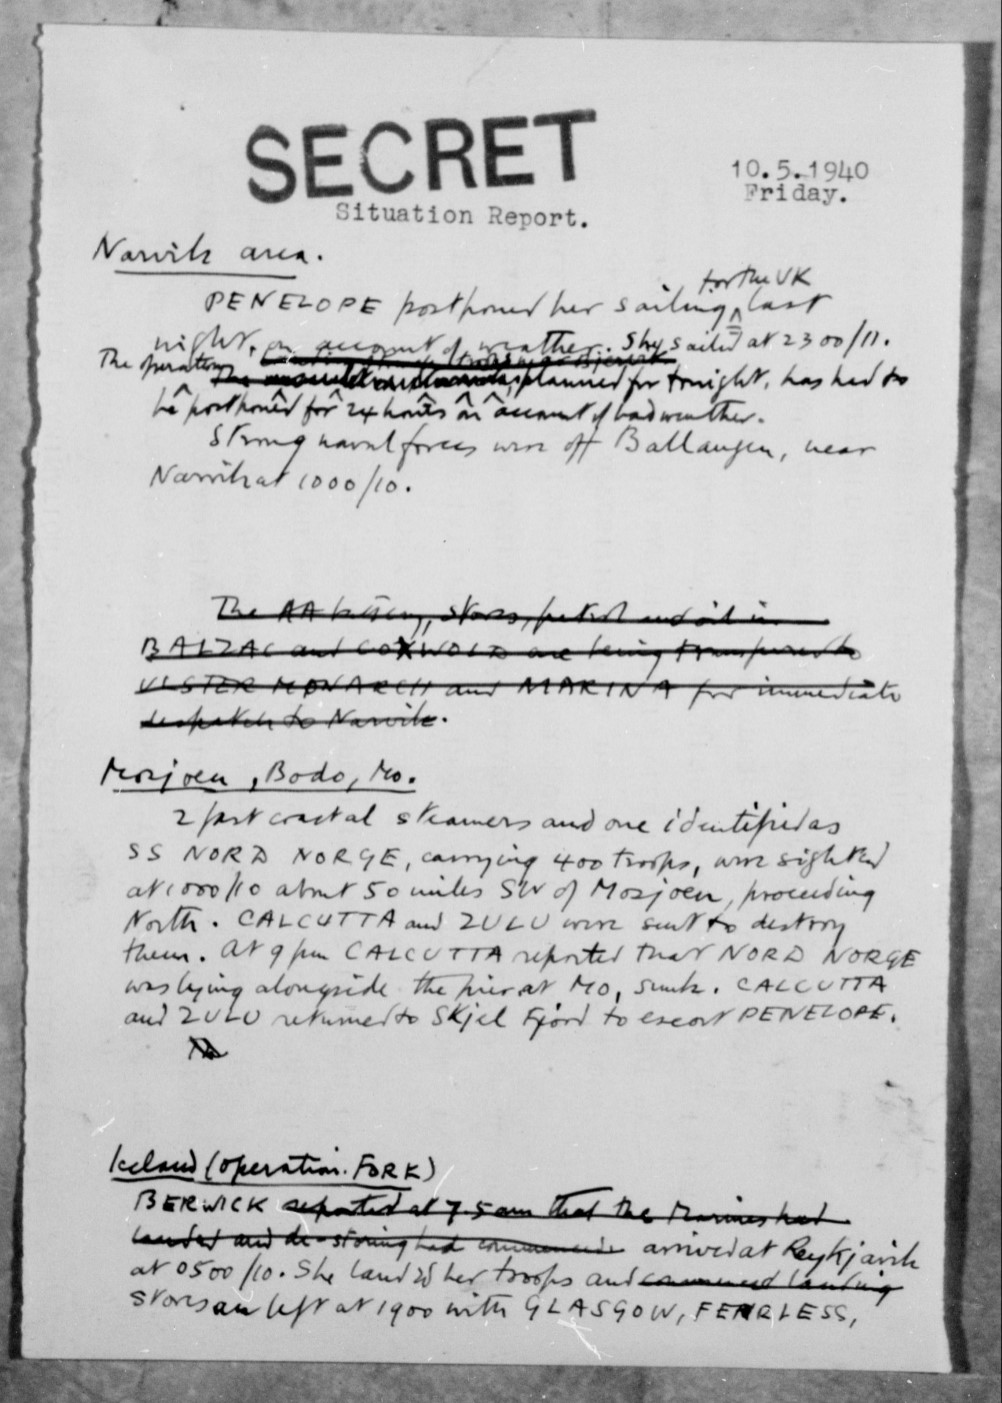 SECRET
10.5.1940
Situation Report.
Friday.
Narvik area.
for the UK
PENELOPE postponed her sailing last
night, on account of weather. She sailed at 2300/11.
The operation
planned for tonight, has had to
be postponed for 24 hours on account of bad weather.
Strong naval forces were off Ballangen, near
Narvik at 1000/10.
The AA battery, stores, petrol and oil in
BALZAC and COXWOLD are being transferred to
ULSTER MONARCH and MARINA for immediate
despatch to Narvik.
Mosjoen, Bodo, Mo.
2 fast coastal steamers and one identified as
SS NORD NORGE, carrying 400 troops, were sighted
at 1000/10 about 50 miles SW of Mosjoen, proceeding
North. CALCUTTA and ZULU were sent to destroy
them. At 9 pm CALCUTTA reported that NORD NORGE
was lying alongside the pier at MO, sunk. CALCUTTA
and ZULU returned to Skjel Fjord to escort PENELOPE.
Iceland (operation. FORK)
BERWICK reported at 7.5 am that the Marines had
landed and de-storing had commenced arrived at Reykjavik
at 0500/10. She landed her troops and commenced landing
stores an left at 1900 with GLASGOW, FEARLESS,